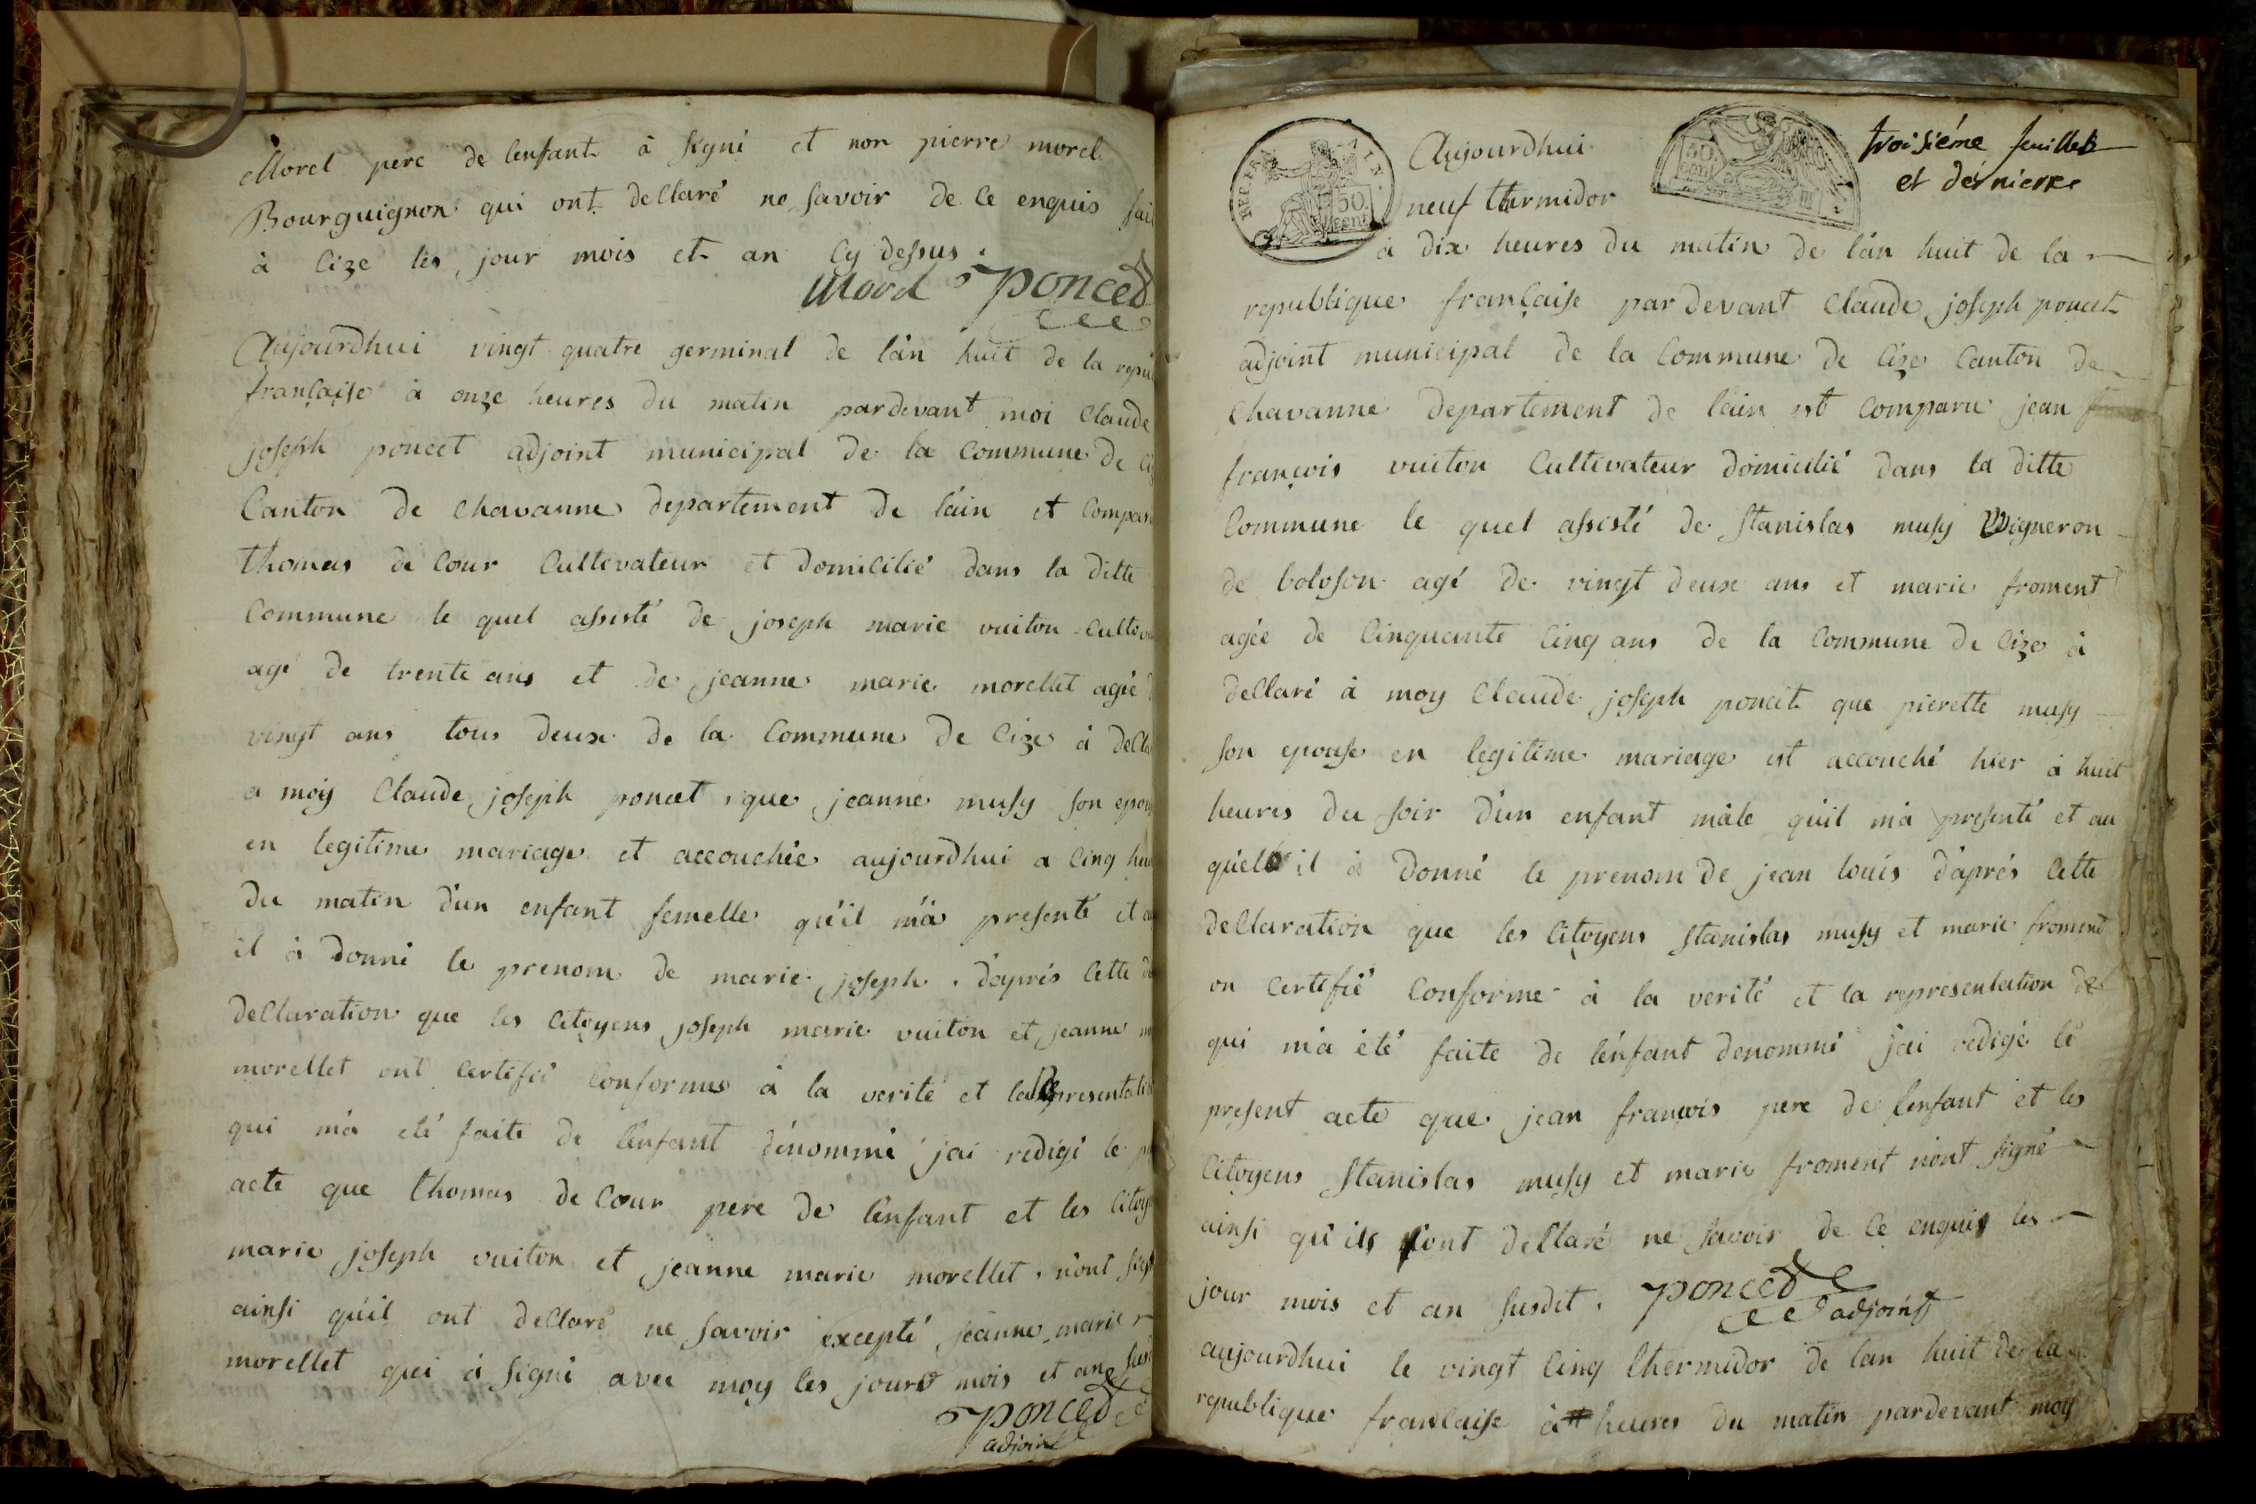 Morel pere de lenfant à signé et non pierre morel
Bourguignon qui ont declaré ne savoir de ce enquis fait
à Cize les jour mois et an Cy dessus.
Morel Poncet
Aujourdhui vingt quatre germinal de lán huit de la repu
française à onze heures du matin pardevant moi Claude
joseph poncet adjoint municipal de la Commune de Ci
Canton de Chavanne departement de láin et Compar
thomas de Cour Cultivateur et domicilié dans la ditte
Commune le quel assisté de joseph marie vuiton Cultiva
agé de trente ans et de jeanne marie morellet agée d
vingt ans tous deux de la Commune de Cize à decla
a moy Claude joseph poncet, que jeanne musy son epou
en legitime mariage et accouchée aujourdhui a Cinq heu
du matin dún enfant femelle qu'il má presenté et a
il à donné le prenom de marie joseph. dáprés Cette de
declaration que les Citoyens joseph marie vuiton et jeanne m
morellet ont Certifié Conformes à la verité et la Representatio
qui má eté faite de lénfant dénommé jai redigé le p
acte que thomas de Cour pere de lénfant et les Citoye
marie joseph vuiton et jeanne marie morellet, nónt sig
ainsi qúil ont declaré ne savoir excepté jeanne marie
morellet qui à signé avec moy les jours mois et an sus
Poncet
adjoint
troisiéme feuillet
et dérniere
REP. FRA
AIN.
50. cent
50. Cent
Aujourdhui
neuf thermidor
à dix heures du matin de lán huit de la
republique française pardevant Claude joseph poncet
adjoint municipal de la Commune de Cize Canton de
Chavanne departement de láin est Comparu jean
françois vuiton Cultivateur domicilié dans la ditte
Commune le quel assisté de Stanislas musy Vigneron
de boloson agé de vingt deux ans et marie froment
agée de Cinquante Cinq ans de la Commune de Cize à
declaré à moy Claude joseph poncet que pierette musy
son epouse en legitime mariage est accouché hier à huit
heures du soir dún enfant mâle qúil má presenté et au
qúel il à donné le prenom de jean louis dáprés Cette
declaration que les Citoyens Stanislas musy et marie froment
on Certifié Conforme à la verité et la representation de
qui má été faite de lénfant denommé jai redigé le
present acte que jean françois pere de lenfant et les
Citoyens Stanislas musy et marie froment nónt signé
ainsi qu'ils ont declaré ne savoir de Ce enquis les
jour mois et an susdit. Poncet
adjoint
aujourdhui le vingt Cinq thermidor de lan huit de la
republique française à heures du matin pardevant moy